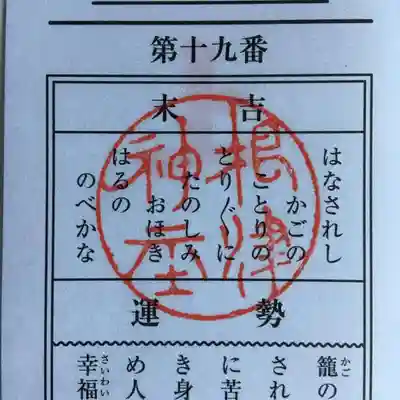 第十九番
末吉
はなされし
かごの
ことりの
とり〴〵に
たのしみ
おほき
はるの
のべかな
根津
神社
運勢
籠の
され
に苦
き身
め人
幸福